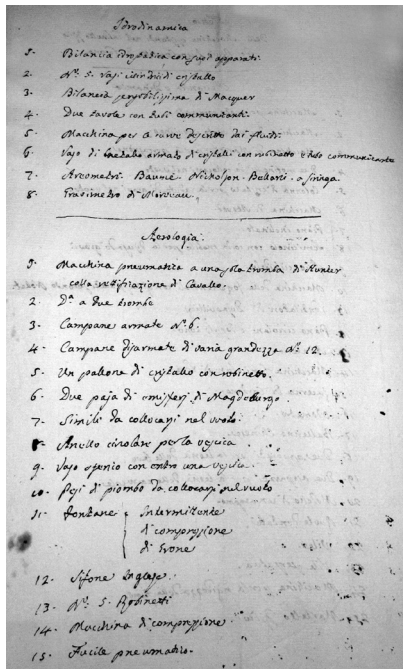 Idrodinamica
1. Bilancia idrostatica con suoi apparati.
2. N.º 5. Vasi cilindrici di cristallo
3. Bilancia sensibilissima di Macquer
4. Due tavole con tubi communicanti.
5. Macchina per le curve descritte dai fluidi.
6. Vaso di metallo armato di cristalli con rubinetto e tubo communicante
7. Areometri. Baumé. Nicholson. Bellani. a siringa.
8. Gravimetro di Morveau.
Aerologia.
1. Macchina pneumatica a una sola tromba di Hunter
colla rettifizazione di Cavallo.
2. D.ª a due trombe
3. Campane armate N.º 6.
4. Campane disarmate di varia grandezza N.º 12.
5. Un pallone di cristallo con robinetto.
6. Due paja di emisferi di Magdeburgo.
7. Simili da collocarsi nel vuoto.
8. Anello circolare per la vescica
9. Vaso con entro una vescica.
10. Pesi di piombo da collocarsi nel vuoto
11. Fontane Intermittente
di compressione
di Erone.
12. Sifone Inglese.
13. N.º 5. Robinetti
14. Macchina di compressione.
15. Fucile pneumatico.